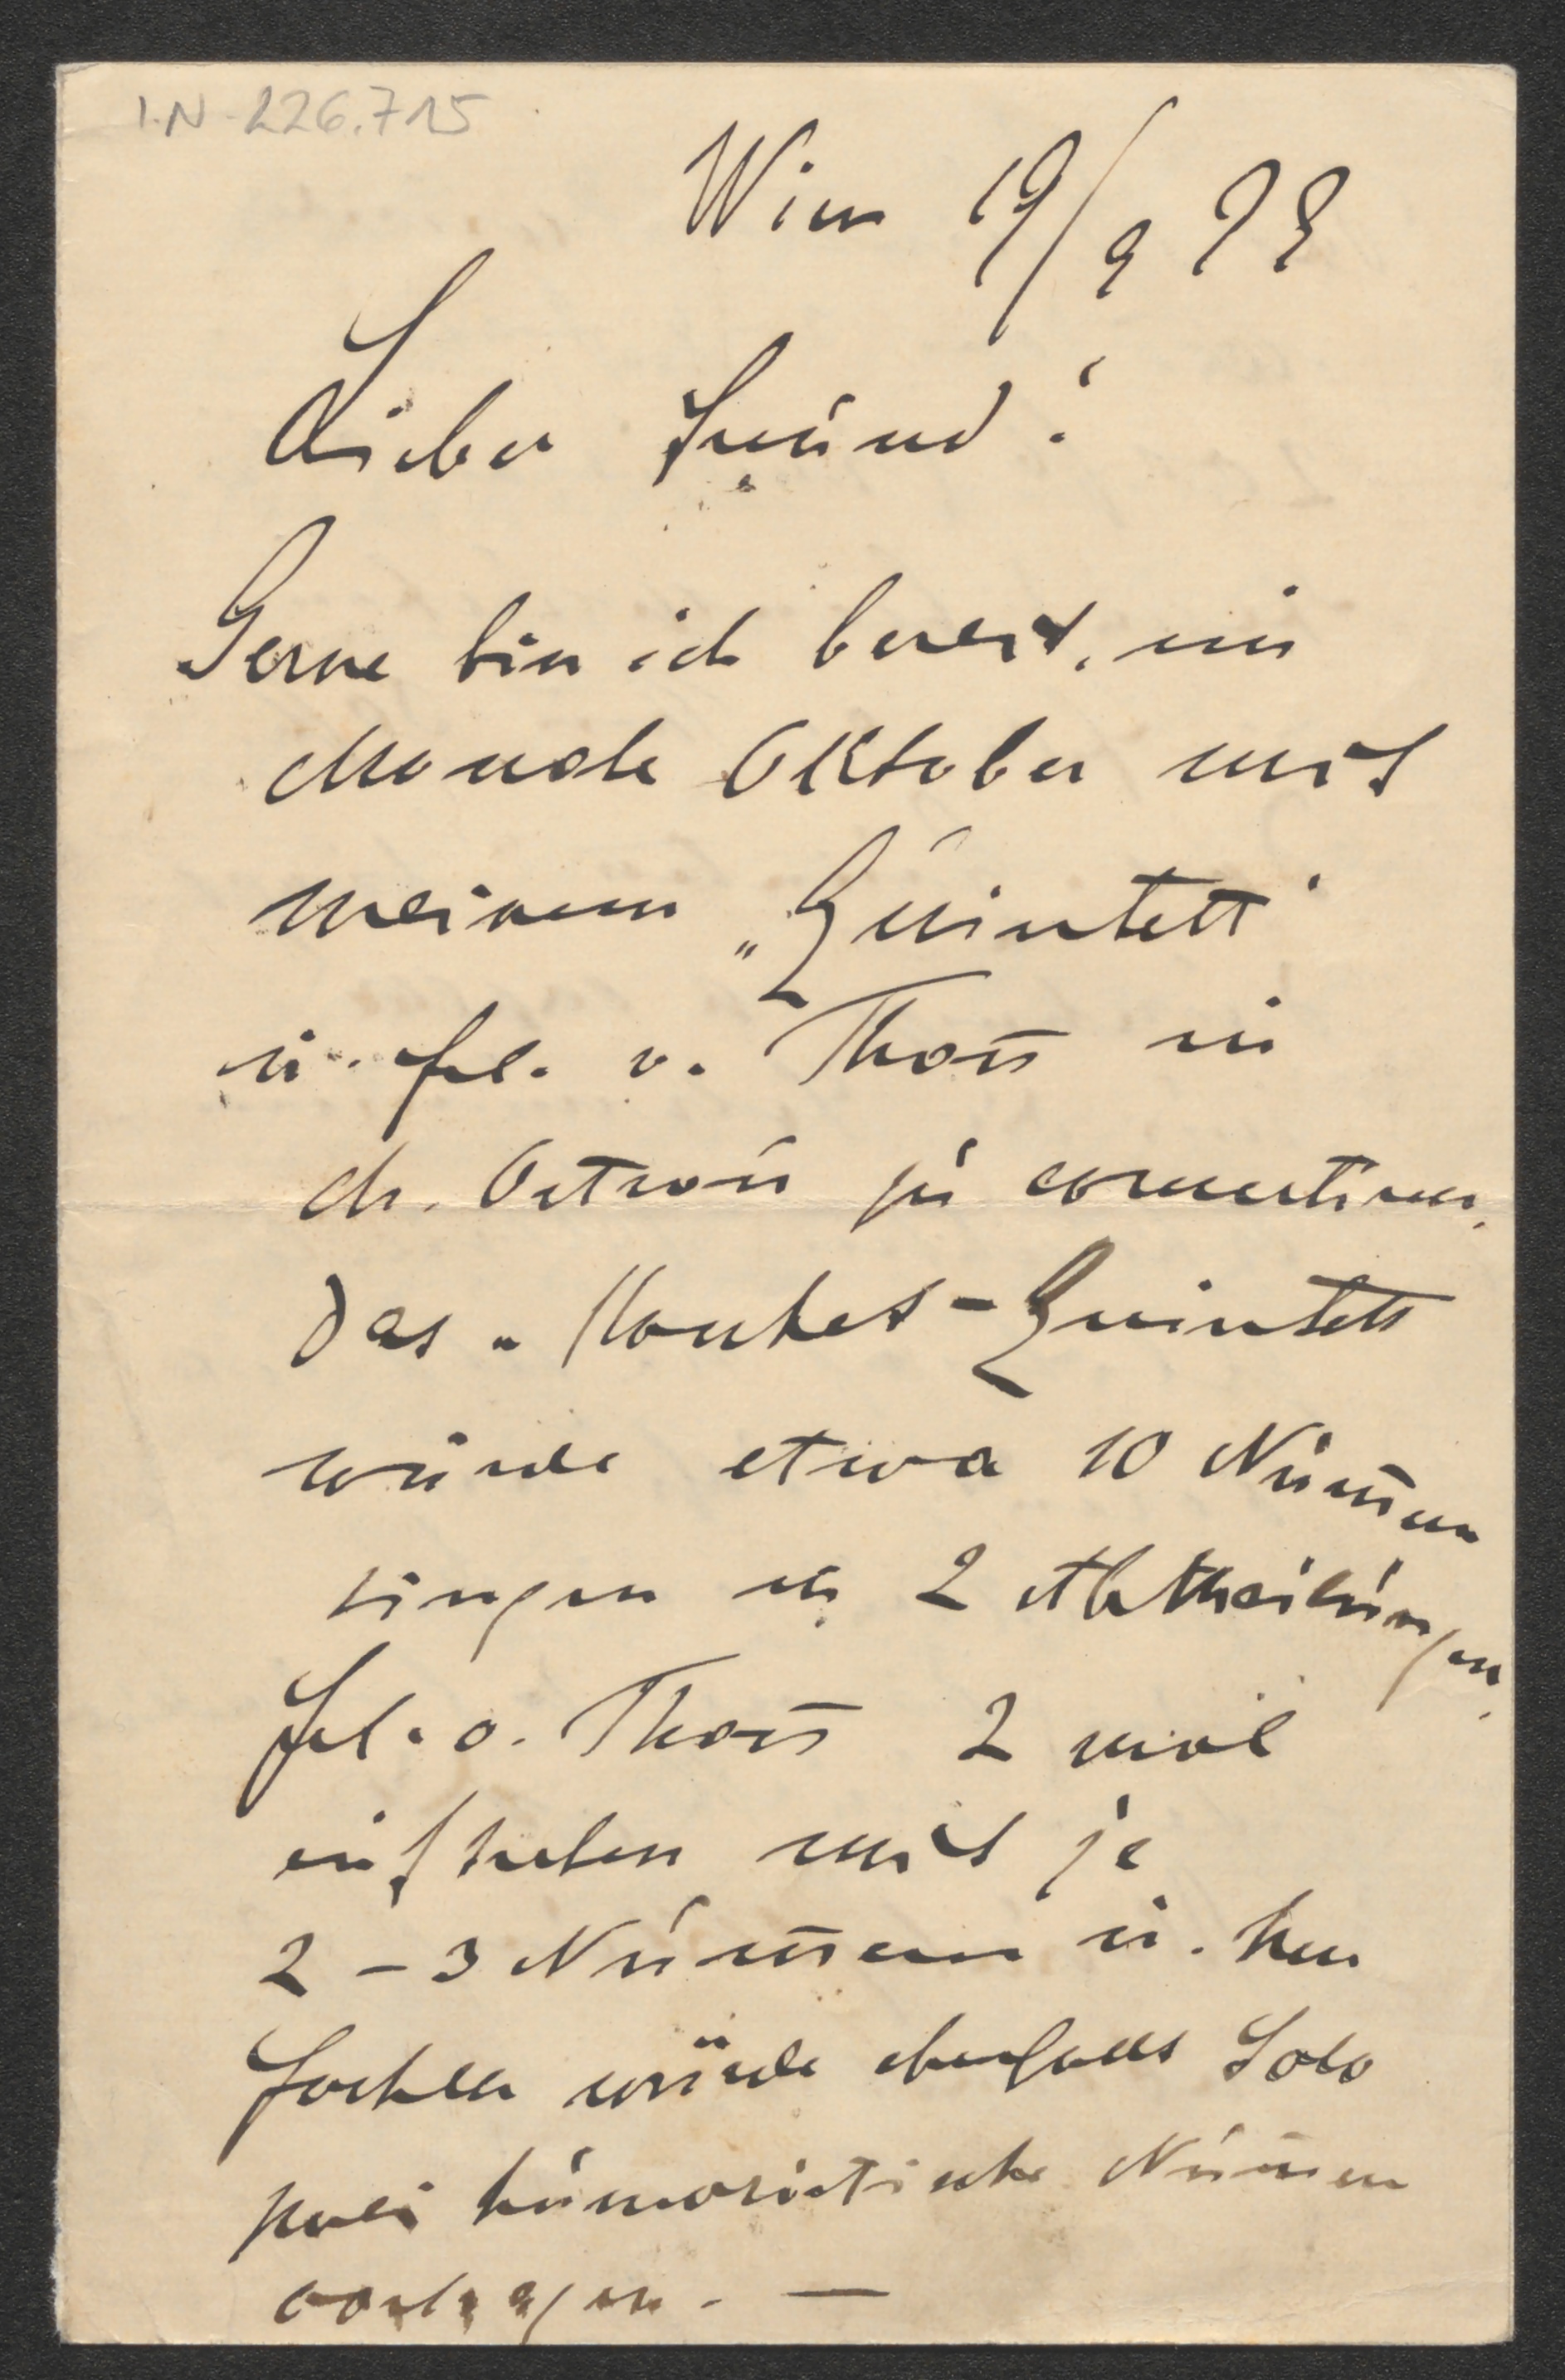 I.N. 226.715
Wien 19/9 98
Lieber Freund!
Gerne bin ich bereit, im
Monate Oktober mit
meinem „Quintett"
u. Frl. v. Thann in
M. Ostrau zu concertiren.
Das „Udel-Quintett
würde etwa 10 Num̅ern
singen in 2 Abtheilungen.
Frl. v. Thann 2 mal
auftreten mit je
2-3 Num̅ern u. Herr
würde ebenfalls Solo
zwei humoristische Num̅ern
vortragen. —